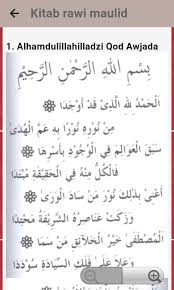 Kitab rawi maulid
1. Alhamdulillahilladzi Qod Awjada
بِسْمِ اللهِ الرَّحْمٰنِ الرَّحِيْمِ
الْحَمْدُ لِلّٰهِ الَّذِيْ قَدْ أَوْجَدَا
مِنْ نُوْرِهِ نُوْرًا بِهِ عَمَّ الْهُدَى
سَبَقَ الْعَوَالِمَ فِي الْوُجُوْدِ بِأَسْرِهَا
فَالْكُلُّ مِنْهُ فِي الْحَقِيْقَةِ مُبْتَدَا
أَعْنِيْ بِذٰلِكَ نُوْرَ مَنْ سَادَ الْوَرَى
وَزَكَتْ عَنَاصِرُهُ الشَّرِيْفَةُ مَحْتِدَا
الْمُصْطَفَى خَيْرُ الْخَلَائِقِ مَنْ سَمَا
وَعَلَا عَلَى فَلَكِ السِّيَادَةِ سُؤْدَدَا